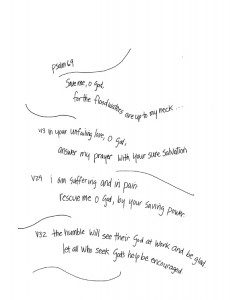 psalm 69
Save me, O God,
for the floodwaters are up to my neck...
v13 in your unfailing love, O God,
answer my prayer with your sure salvation
V29 i am suffering and in pain
rescue me O God, by your saving power.
V32 the humble will see their God at work and be glad
let all who seek God's help be encouraged